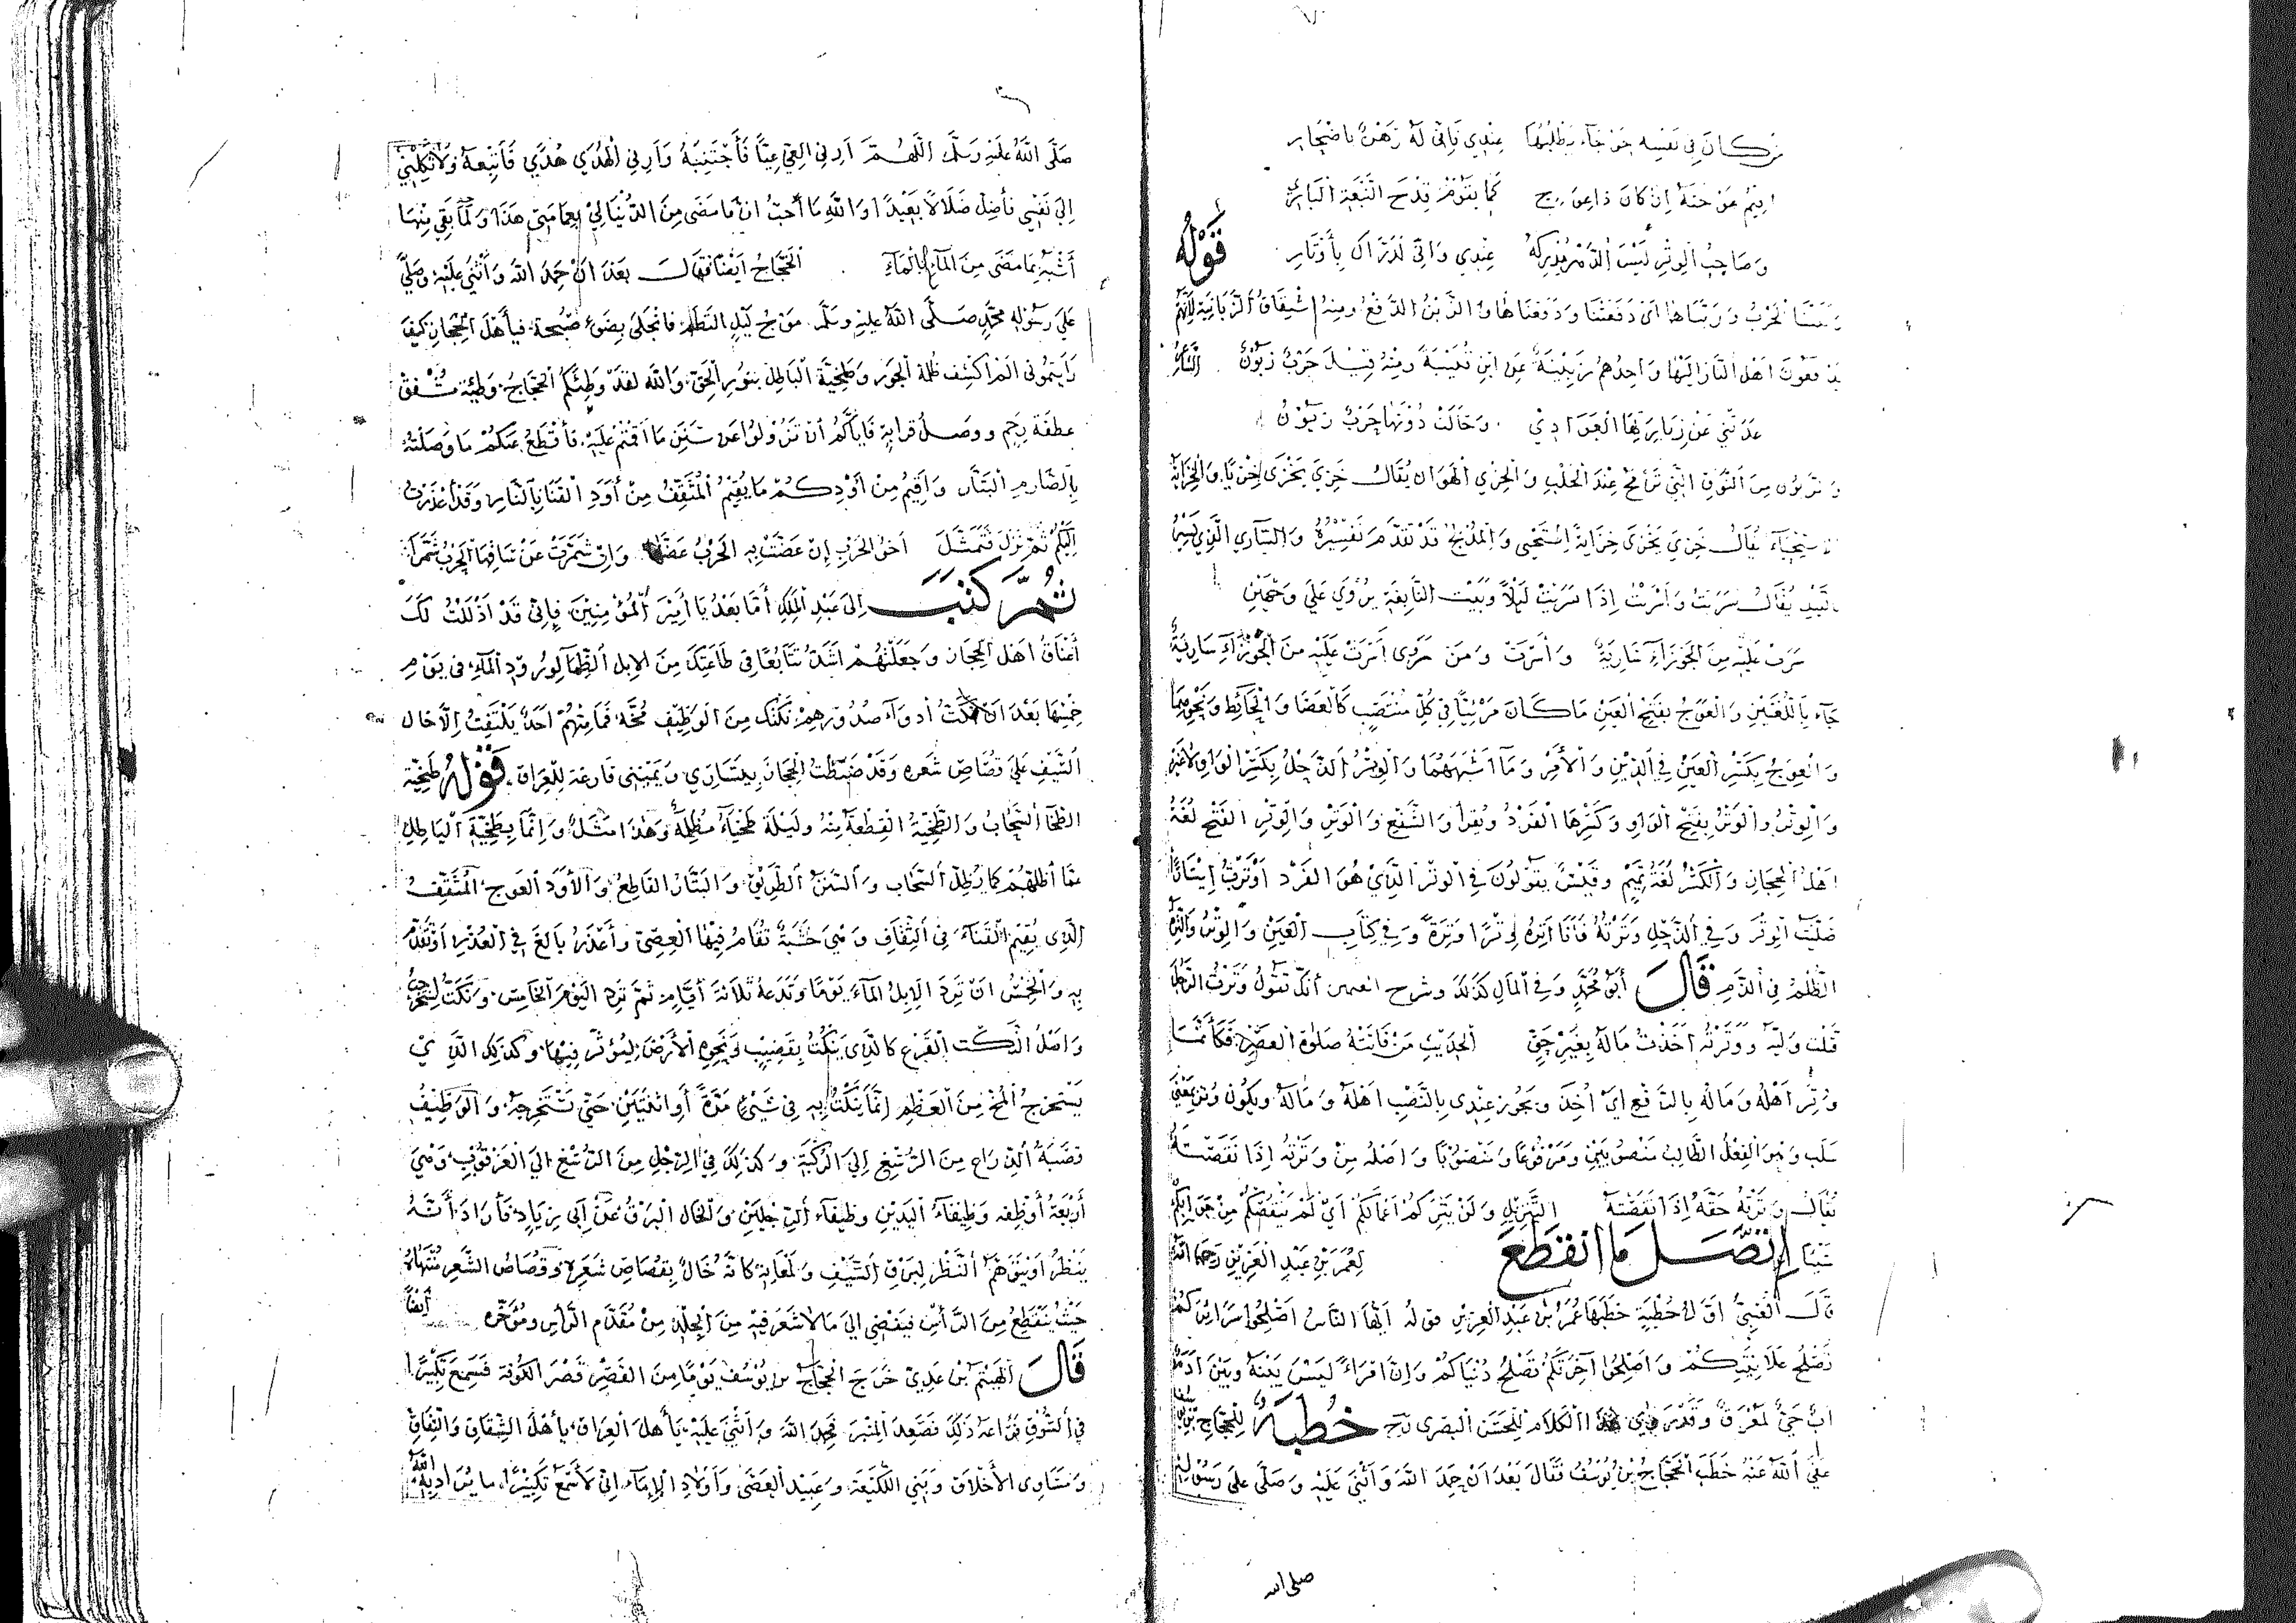 من كان في نفسه حوجاء يطلبها عندي فاني له رهن باصحار
اقيم عوجته ان كان ذا عوج كما يقوم قدح النبعة الباري
وصاحب الوتر ليس الدهر يدركه عندي واني لدراك باوتار قوله
الحرب وزبناها اى دفعتنا ودفعناها والزبن الدفع ومنه اشتقاق الزبانية لانهم
يدفعون اهل النار اليها واحدهم زبنية عن ابن قتيبة ومنه قيل حرب زبون الشاعر
عدتني عن زيارتها العوادي وحالت دونها حرب زبون
وزبون من النوق التي ترمح عند الحلب والخزي الهوان يقال خزي يخزى خزيا والخزاية
الاستحياء يقال خزي يخزى خزاية استحيى والمدلج قد تقدم تفسيره والساري الذي يسير
بالليل يقال سريت واسريت اذا سرت ليلا وبيت النابغة يروى على وجهين
سرت عليه من الجوزاء سارية واسرت ومن روى أسرت عليه من الجوزاء سارية
جاء باللغتين والعوج بفتح العين ما كان مرئيا في كل منتصب كالعصا والحائط ونحوهما
والعوج بكسر العين في الدين والأمر وما اشبههما والوتر الذحل بكسر الواو لا غير
والوتر والوتر بفتح الواو وكسرها الفرد ونقرأ والشفع والوتر والوتر الفتح لغة
اهل الحجاز والكسر لغة تميم وقيس يقولون في الوتر الذي هو الفرد اوترت ايتارا
صليت الوتر وفي الذحل وترته فأنا اتره وترا وترة وفي كتاب العين والوتر والترة
الظلم في الدم قال أبو محمد وفي المال كذلك وشرح أنك تقول وترت الرجل
قتلت وليه ووترته اخذت ماله بغير حق الحديث من فاتته صلوة العصر فكأنما
وتر اهله وماله بالرفع اي اخذ ويجوز عندي بالنصب اهله وماله ويكون وتر بمعنى
سلب وهو الفعل الطالب منصوبين ومرفوعا ومنصوبا واصله من وترته اذا نقصته
يقال وترته حقه اذا نقصته التنزيل ولن يتركم اعمالكم اي لم ينقصكم من جزائكم
شيئا اتصل ما انقطع لعمر بن عبد العزيز رحمه الله
قال العتبي اول خطبة خطبها عمر بن عبد العزيز قوله ايها الناس اصلحوا سرائركم
تصلح علانيتكم واصلحوا آخرتكم تصلح دنياكم وان امرءا ليس بينه وبين ادم
اب حي لمعرق وقد روي هذا الكلام للحسن البصري خطبة للحجاج
الله عنه خطب الحجاج بن يوسف فقال بعد ان حمد الله واثنى عليه وصلى على رسوله
صلى الله
صلى الله عليه وسلم اللهم ارني الغي غيا فأجتنبه وارني الهدي هدي فاتبعه ولا تكلني
الى نفسي فأضل ضلالا بعيدا والله ما أحب ان ما مضى من الدنيا لي بعمامتي هذه ولما بقي منها
أشبه بما مضى من الماء بالماء الحجاج ايضا فقال بعد ان حمد الله وأثنى عليه وصلى
على رسوله محمد صلى الله عليه وسلم موج ليل التطم فانجلى بضوء صبحه فيأهل الحجاز كيف
رايتموني الم اكشف ظلمة الجور وطخية الباطل بنور الحق والله لقد وطئكم الحجاج وطئة مشفق
عطفة رحم ووصل قرابة فاياكم ان تزلوا عن سنن ما اقمتم عليه فأقطع عنكم ما وصلته
بالصارم البتار واقيم من اودكم ما يقيم المثقف من أود القنا بالنار وقد اعذرت
اليكم ثم نزل فتمثل اخو الحرب إن عضت به الحرب عضها وان شمرت عن ساقها الحرب شمرا
ثم كتب الى عبد الملك أما بعد يا امير المؤمنين فاني قد اذللت لك
أعناق اهل الحجاز وجعلتهم اشد تتابعا في طاعتك من الابل الظماء لورود الماء في يوم
خمسها بعد ان نكت ادواء صدورهم نكتك من الوظيف مخه فما منهم احد يلتفت الا خال
السيف على قصاص شعره وقد ضبطت الحجاز بيساري ويميني فارغة للعراق قوله طخية
الطخا السحاب والطخية القطعة منه وليلة طخياء مظلمة وهذا مثل وانما بطخية الباطل
ما اظلهم كما يظل السحاب والسنن الطريق والبتار القاطع والأود العوج المثقف
الذى يقيم القناء في الثقاف وهي خشبة تقام فيها العصي وأعذر بالغ في العذر اوتقدم
به والخمس ان ترد الابل الماء يوما وتدعه ثلاثة أيام ثم ترد اليوم الخامس ونكت
واصل النكت القرع كالذي ينكت بقضيب ونحوه الأرض ليؤثر فيها وكذلك الذي
يستخرج المخ من العظم انما ينكت به في شيء مرة أو اثنتين حتى تستخرجه والوظيف
قصبة الذراع من الرسغ إلى الركبة وكذلك في الرجل من الرسغ الى العرقوب وهي
أربعة أوظفه وظيفاء اليدين وظيفاء الرجلين والخال البرق عن أبي زياد فأراد أنه
ينظر أو يتوهم النظر لبرق السيف ولمعانه كانه خال بقصاص شعره وقصاص الشعر منتهاه
حيث ينقطع من الرأس فيفضي الى ما لا شعر فيه من الجلد من مقدم الرأس ومؤخره أيضا
قال الهيثم بن عدي خرج الحجاج بن يوسف يوما من القصر قصر الكوفة فسمع تكبيرا
في السوق فراعه ذلك فصعد المنبر فحمد الله واثنى عليه يأهل العراق يأهل الشقاق والنفاق
ومساوى الأخلاق وبني اللكيعة وعبيد العصى وأولاد الإماء اني لأسمع تكبيرا ما يراد به الله